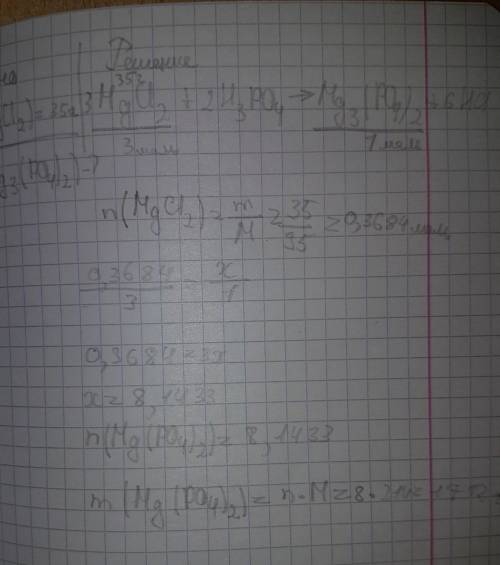 Решение
gCl₂) = 35г
35г
3MgCl₂ + 2H₃PO₄ → Mg₃(PO₄)₂ + 6HCl
3 моль 1 моль
g₃(PO₄)₂) - ?
n(MgCl₂) = m/M = 35/95 = 0,3684 моль
0,3684/3 = x/1
0,3684 = 3x
x = 8,1433
n(Mg(PO₄)₂) = 8,1433
m(Mg(PO₄)₂) = n·M = 8·